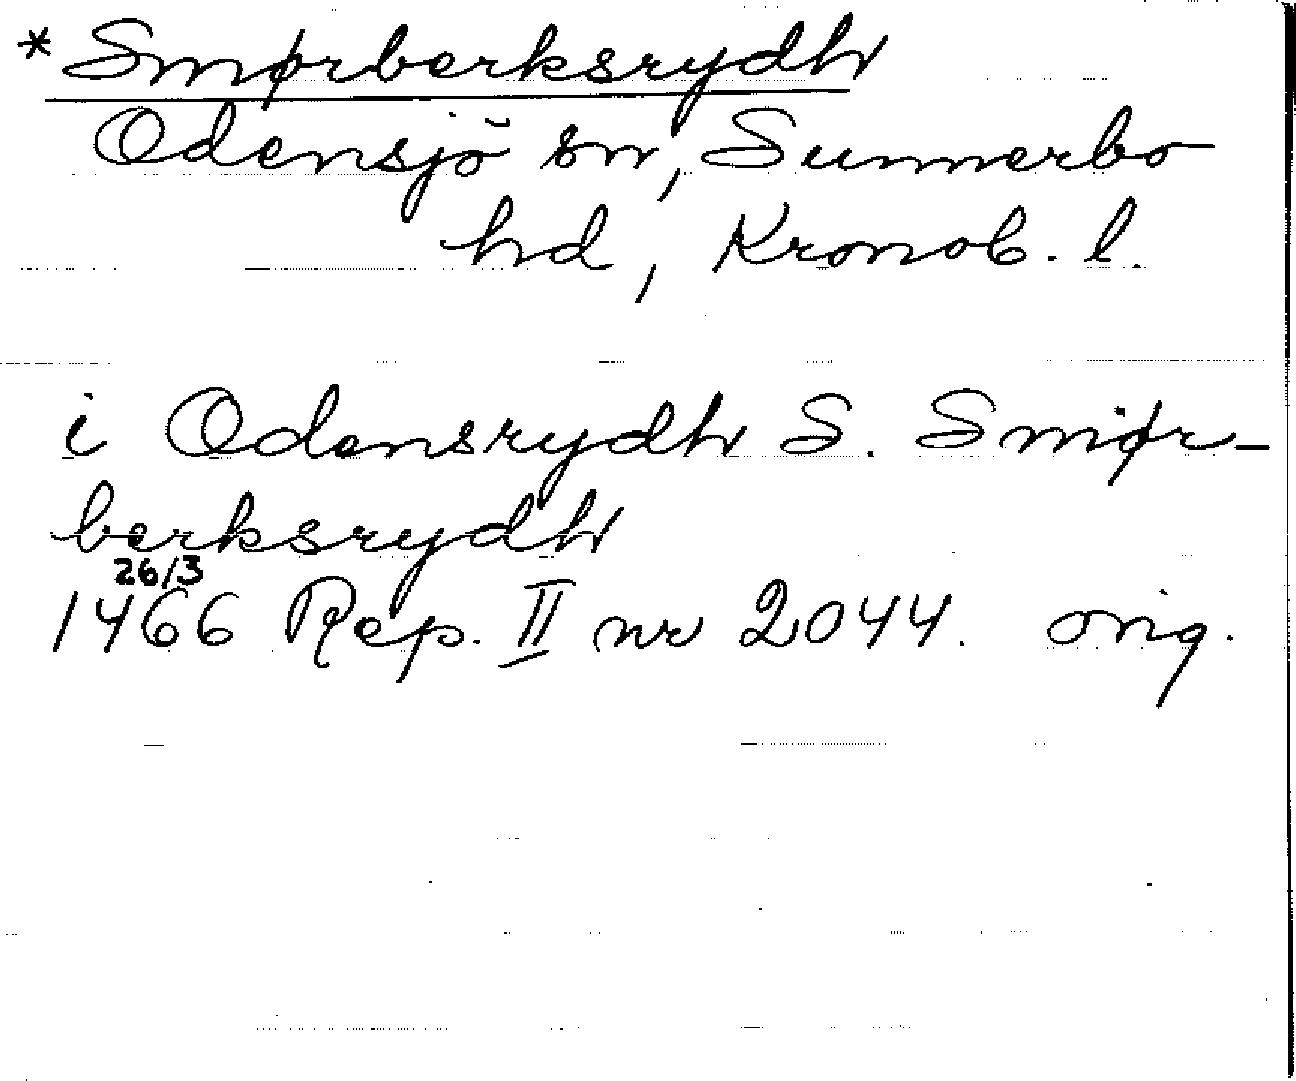 * Smørberksrydh
Odensjö sn, Sunnerbo
hd, Kronob. l.
i Odensrydh S. Smiør-
berksrydh
26/3
1466 Rep. II nr 2044. orig.